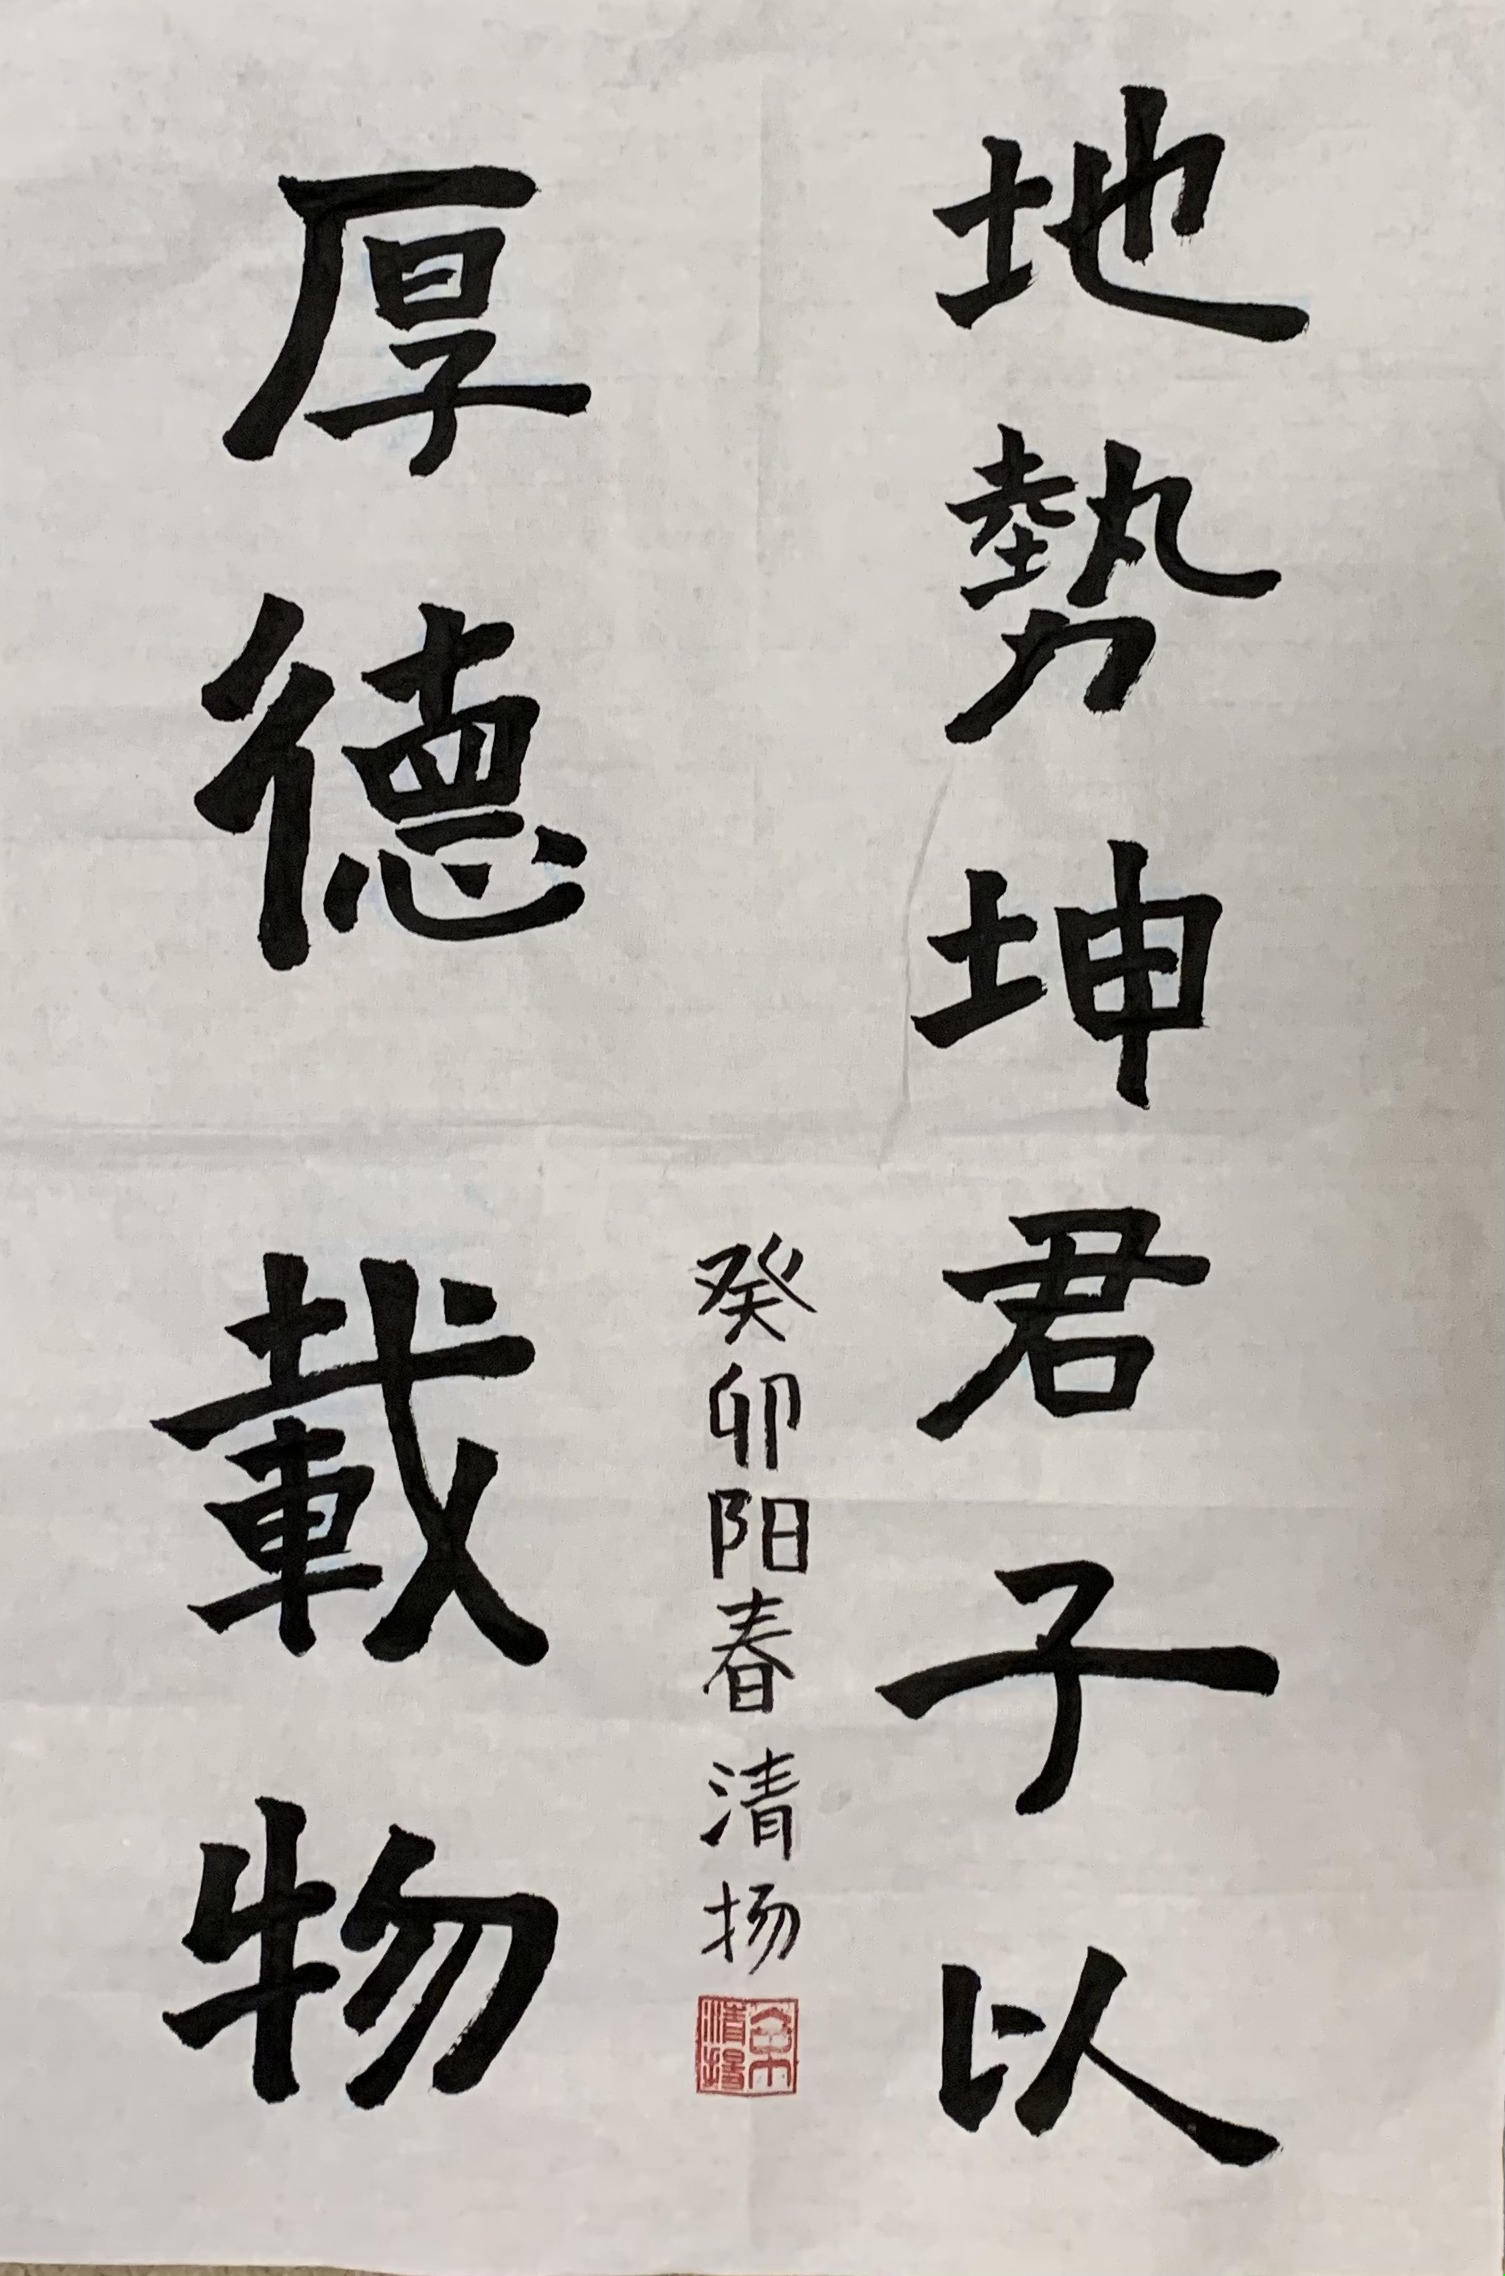 地勢坤君子以
厚德載物
癸卯阳春 清扬
清揚